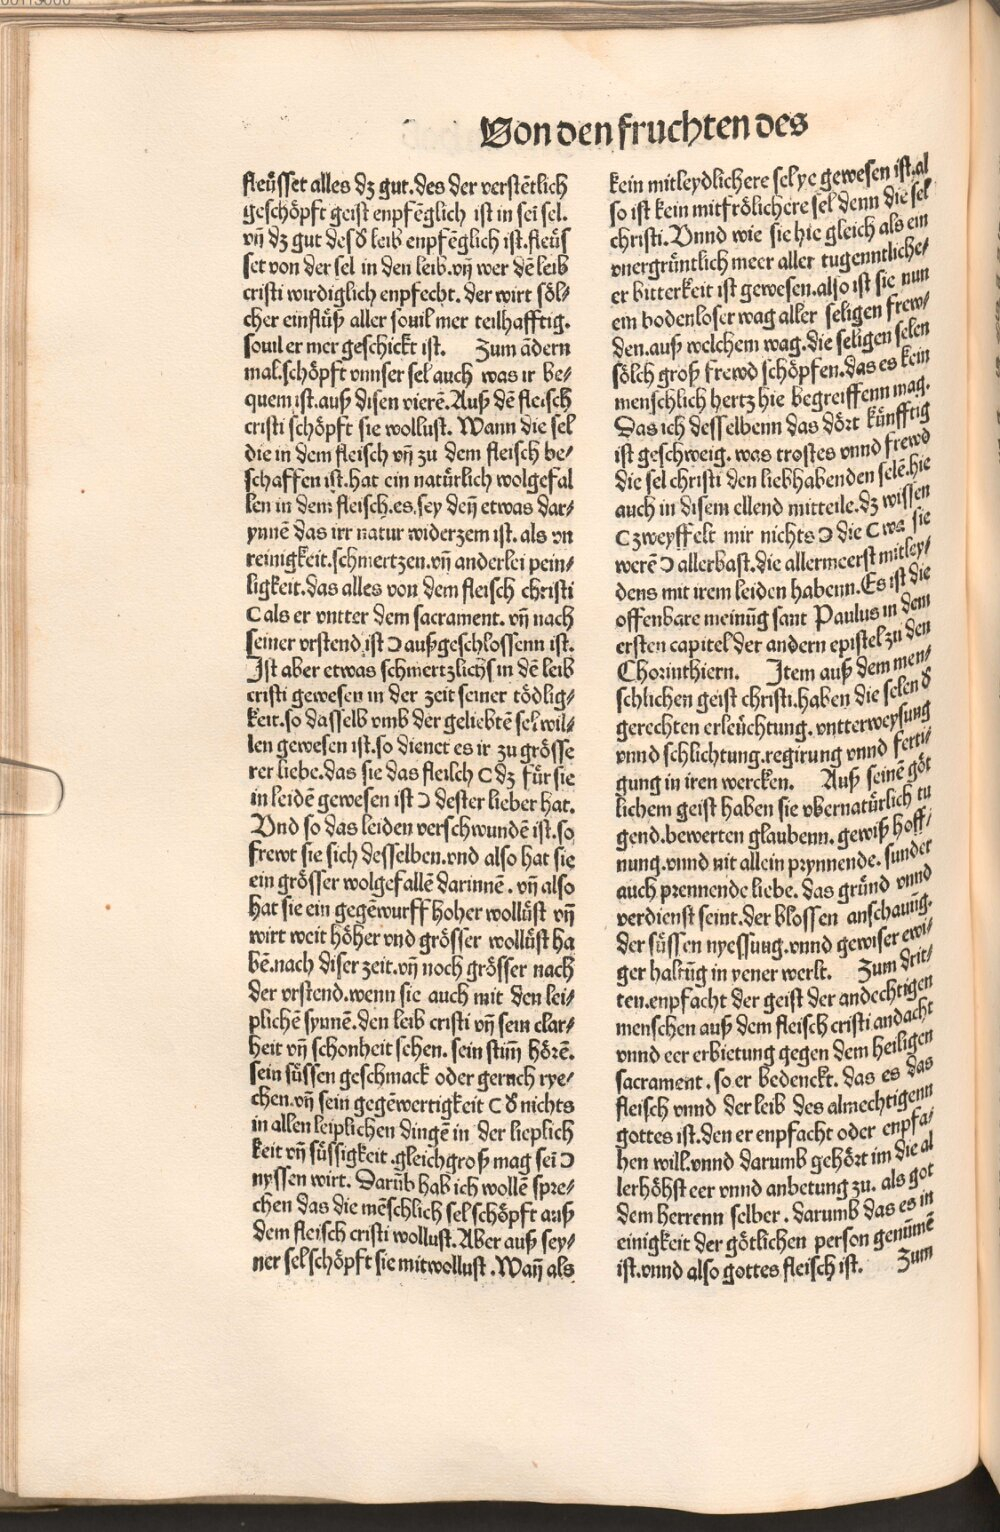 Von den fruchten des
fleüsset alles dz gut. des der verstẽtlich
geschöpft geist enpfẽglich ist in sei̇̃ sel.
vñ dz gut des ð leib enpfẽglich ist. fleüs
set von der sel in den leib. vñ wer dẽ leib
cristi wirdiglich enpfecht. der wirt söl⸗
cher einflüß aller souil mer teilhafftig.
souil er mer geschickt ist. Zum ãdern
mal. schöpft vnnser sel auch was ir be⸗
quem ist. auß disen vierẽ. Auß dẽ fleisch
cristi schöpft sie wollust. Wann die sel
die in dem fleisch vñ zu dem fleisch be⸗
schaffen ist. hat ein natürlich wolgefal
len in dem fleisch. es. sey deñ etwas dar⸗
ynnẽ das irr natur widerzem ist. als vn
reinigkeit. schmertzen. vñ anderlei pein⸗
ligkeit. das alles von dem fleisch christi
C als er vntter dem sacrament. vñ nach
seiner vrstend ist Ɔ außgeschlossenn ist.
Ist aber etwas schmertzlichs in dẽ leib
cristi gewesen in der zeit seiner tödlig⸗
keit. so dasselb vmb der geliebtẽ sel wil⸗
len gewesen ist. so dienet es ir zu grösse
rer liebe. das sie das fleisch C dz für sie
in leidẽ gewesen ist Ɔ dester lieber hat.
Vnd so das leiden verschwundẽ ist. so
frewt sie sich desselben. vnd also hat sie
ein grösser wolgefallẽ darinnẽ. vñ also
hat sie ein gegẽwurff hoher wollüst vñ
wirt weit höher vnd grösser wollüst ha
bẽ. nach diser zeit. vñ noch grösser nach
der vrstend. wenn sie auch mit den lei⸗
plichẽ synnẽ. den leib cristi vñ sein clar⸗
heit vñ schonheit sehen. sein stim̃ hörẽ.
sein süssen geschmack oder geruch rye⸗
chen. vñ sein gegẽwertigkeit C ð nichts
in allen leiplichen dingẽ in der lieplich
keit vñ süssigkeit. gleichgroß mag sei̇̃ Ɔ
nyssen wirt. Darũb hab ich wollẽ spre⸗
chen das die mẽschlich sel schöpft auß
dem fleisch cristi wollust. Aber auß sey⸗
ner sel schöpft sie mitwollust. Wañ als
kein mitleydlichere sel ye gewesen ist. al
so ist kein mitfrölichere sel denn die sel
christi. Vnnd wie sie hie gleich als ein
vnergrüntlich meer aller tugenntliche⸗
er bitterkeit ist gewesen. also ist sie nun
ein bodenloser wag aller seligen frew⸗
den. auß welchem wag. die seligen selen
sölch groß frewd schöpfen. das es kein
menschlich hertz hie begreiffenn mag.
Das ich desselbenn das dört künfftig
ist geschweig. was trostes vnnd frewd
die sel christi den liebhabenden selẽ. hie
auch in disem ellend mitteile. dz wissen
C zweyffelt mir nichts Ɔ die C wa sie
werẽ Ɔ allerbast. die allermeerst mitley⸗
dens mit irem leiden habenn. Es ist die
offenbare meinũg sant Paulus in dem
ersten capitel der andern epistel zu den
Chorinthiern. Item auß dem men⸗
schlichen geist christi. haben die selen ð
gerechten erleüchtung. vntterweysung
vnnd schlichtung. regirung vnnd ferti⸗
gung in iren wercken. Auß seinẽ göt
lichem geist haben sie vbernatürlich tu
gend. bewerten glaubenn. gewiß hoff⸗
nung. vnnd nit allein prynnende. sunder
auch prennende liebe. das gründ vnnd
verdienst seint. der blossen anschauũg.
der süssen nyessung. vnnd gewiser ewi⸗
ger haltũg in yener werlt. Zum drit⸗
ten. enpfacht der geist der andechtigen
menschen auß dem fleisch cristi andacht
vnnd eer erbietung gegen dem heiligen
sacrament. so er bedenckt. das es das
fleisch vnnd der leib des almechtigenn
gottes ist. den er enpfacht oder enpfa⸗
hen will. vnnd darumb gehört im die al
lerhöhst eer vnnd anbetung zu. als got
dem herrenn selber. darumb das es in
einigkeit der götlichen person genũmẽ
ist. vnnd also gottes fleisch ist. Zum